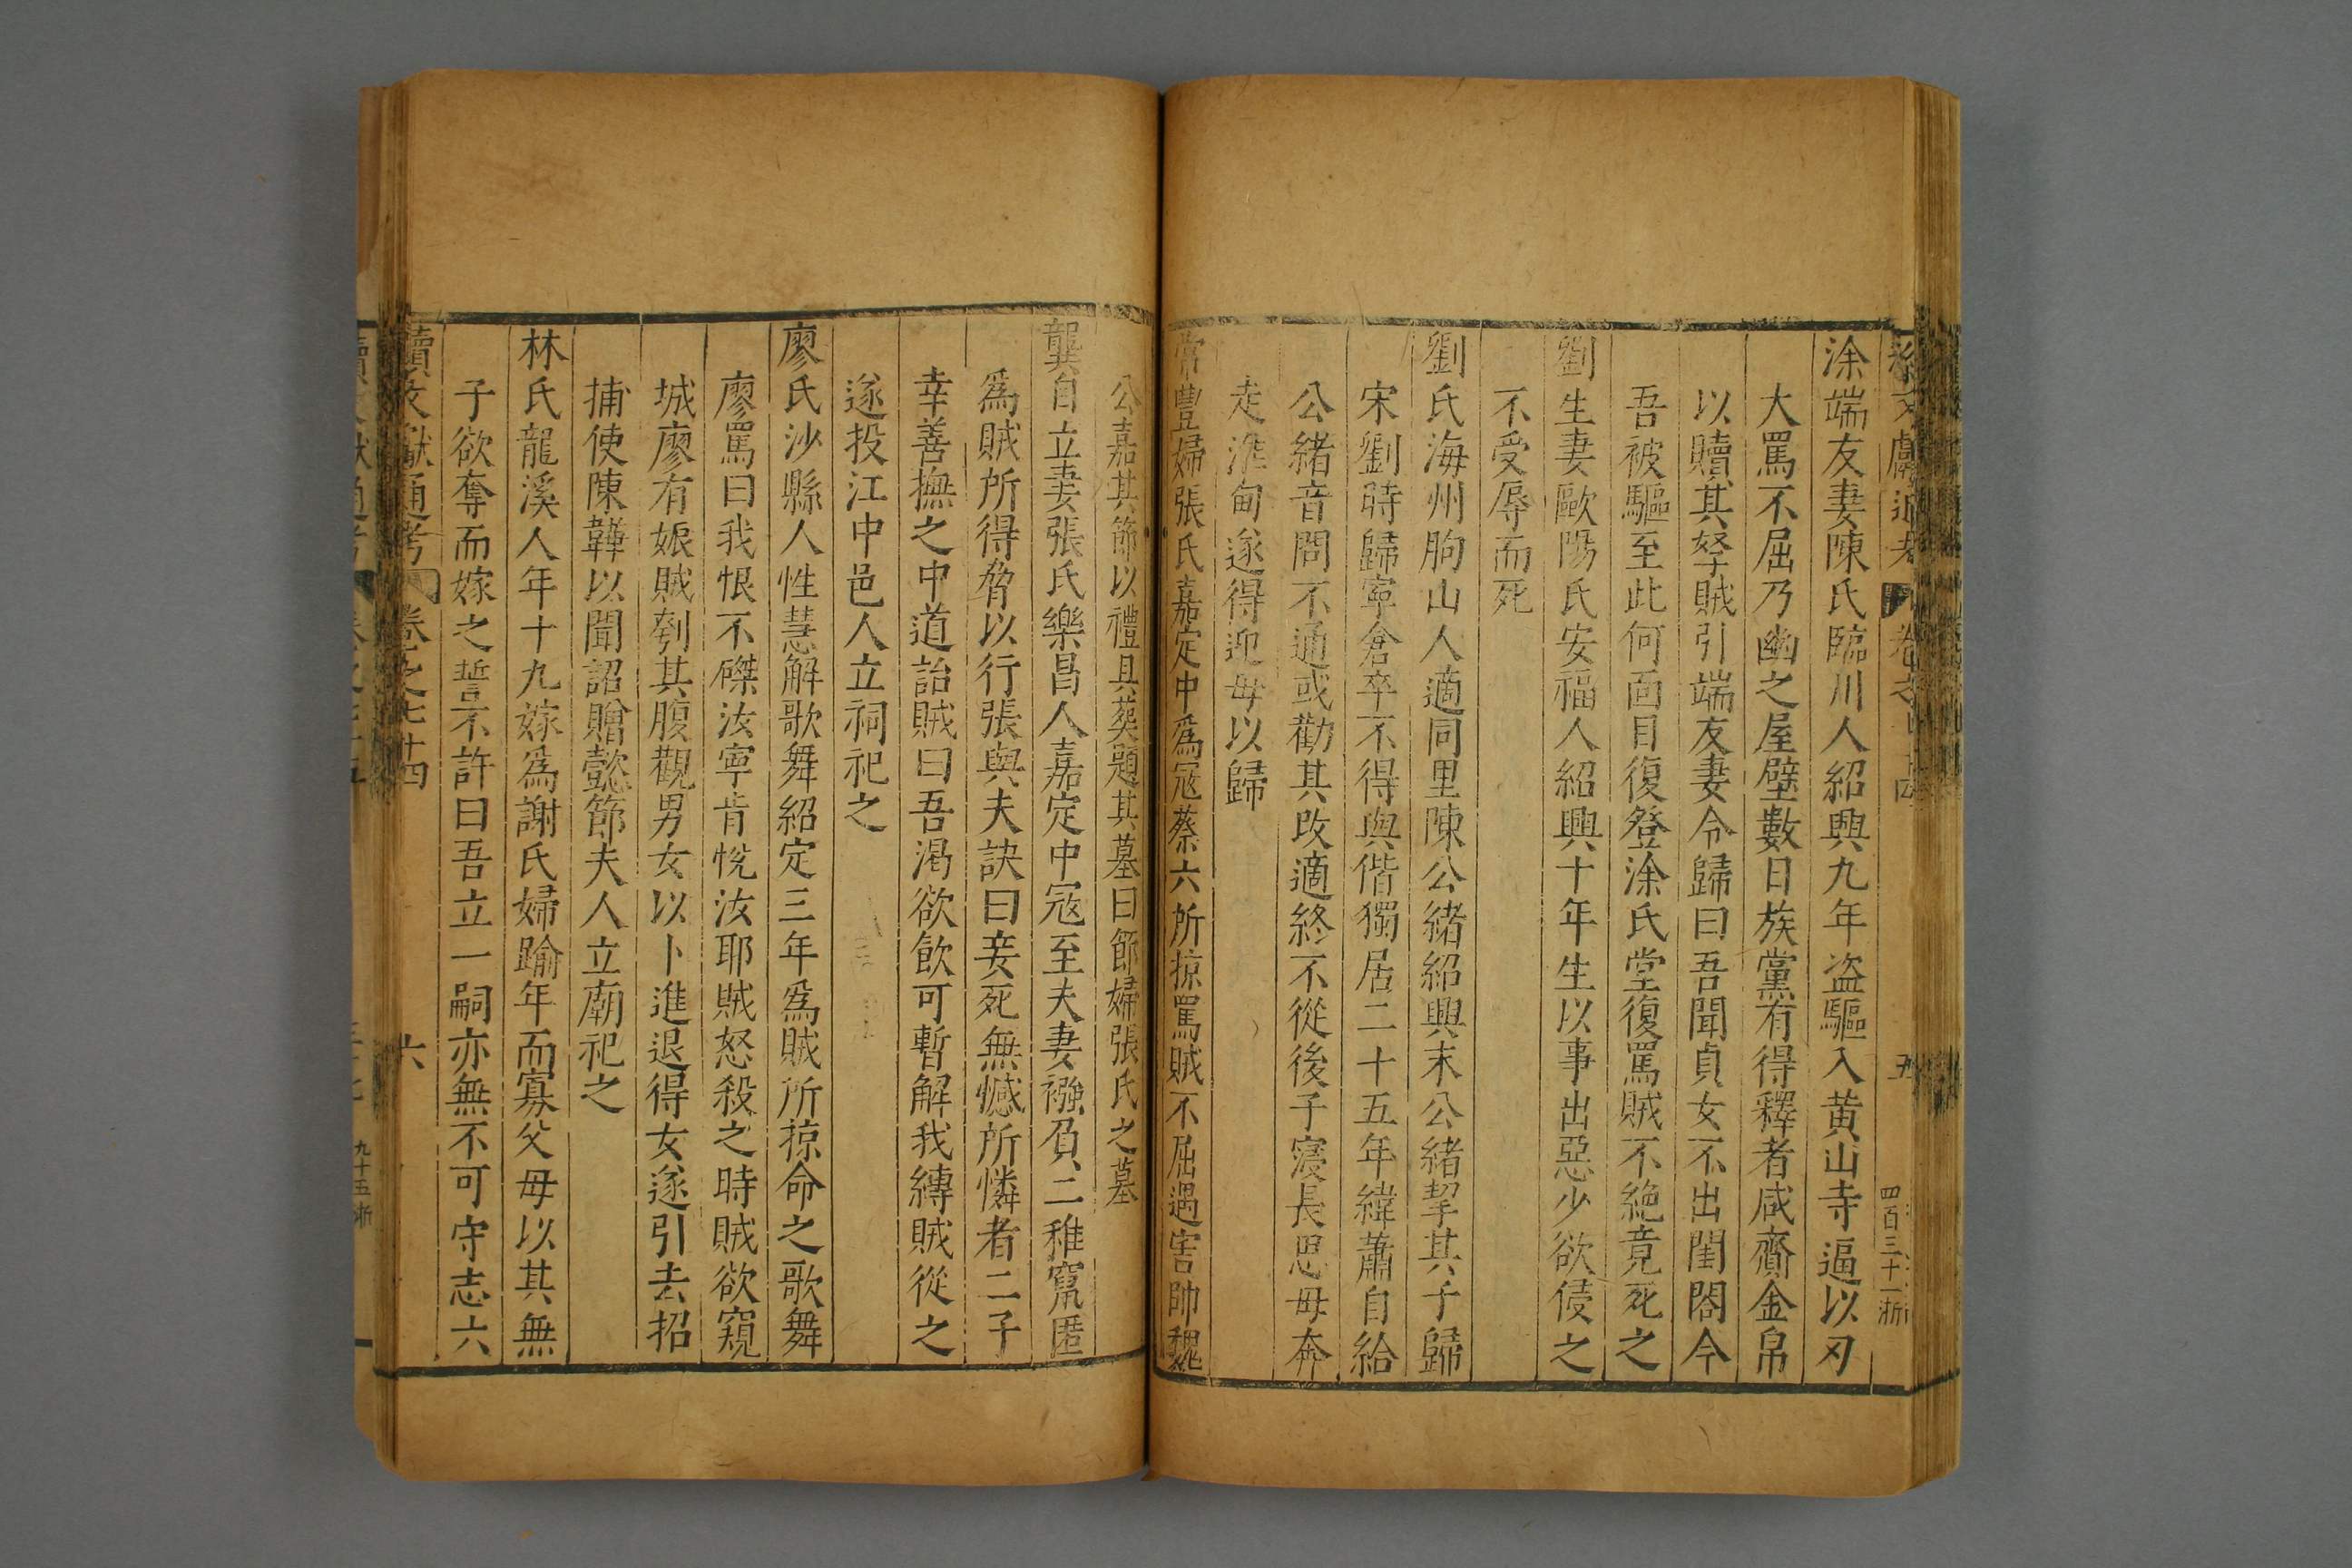 涂端友妻陳氏臨川人紹興九年盗驅入黄山寺逼以刃
大罵不屈乃幽之屋壁數日族黨有得釋者咸齎金帛
以贖其孥賊引端友妻令歸曰吾聞貞女不出閨閤今
吾被驅至此何面目復登涂氏堂復罵賊不絶竟死之
劉生妻歐陽氏安福人紹興十年生以事出惡少欲侵之
不受辱而死
劉氏海州朐山人適同里陳公緒紹興末公緒挈其子歸
宋劉時歸寧倉卒不得與偕獨居二十五年緯蕭自給
公緒音問不通或勸其改適終不從後子寖長思母奔
走淮甸遂得迎母以歸
常豊婦張氏嘉定中爲冦蔡六所掠罵賊不屈遇害帥魏
公嘉其節以禮具葬題其墓曰節婦張氏之墓
龔自立妻張氏樂昌人嘉定中冦至夫妻襁負二稚竄匿
爲賊所得脅以行張與夫訣曰妾死無憾所憐者二子
幸善撫之中道詒賊曰吾渴欲飮可暫解我縛賊從之
遂投江中邑人立祠祀之
廖氏沙縣人性慧解歌舞紹定三年爲賊所掠命之歌舞
廖罵曰我恨不磔汝寧肯悅汝耶賊怒殺之時賊欲窺
城廖有娠賊刳其腹觀男女以卜進退得女遂引去招
捕使陳韡以聞詔贈懿節夫人立廟祀之
林氏龍溪人年十九嫁爲謝氏婦踰年而寡父母以其無
子欲奪而嫁之誓不許曰吾立一嗣亦無不可守志六
續文獻通考 卷之七十四 六